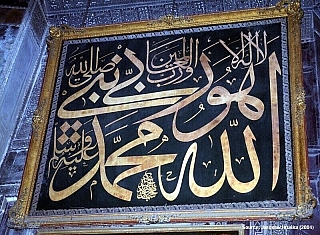 لا اله الا هو ربي ورب العالمين
الله
محمد نبيي صلى الله عليه وسلم
Source: (2004)